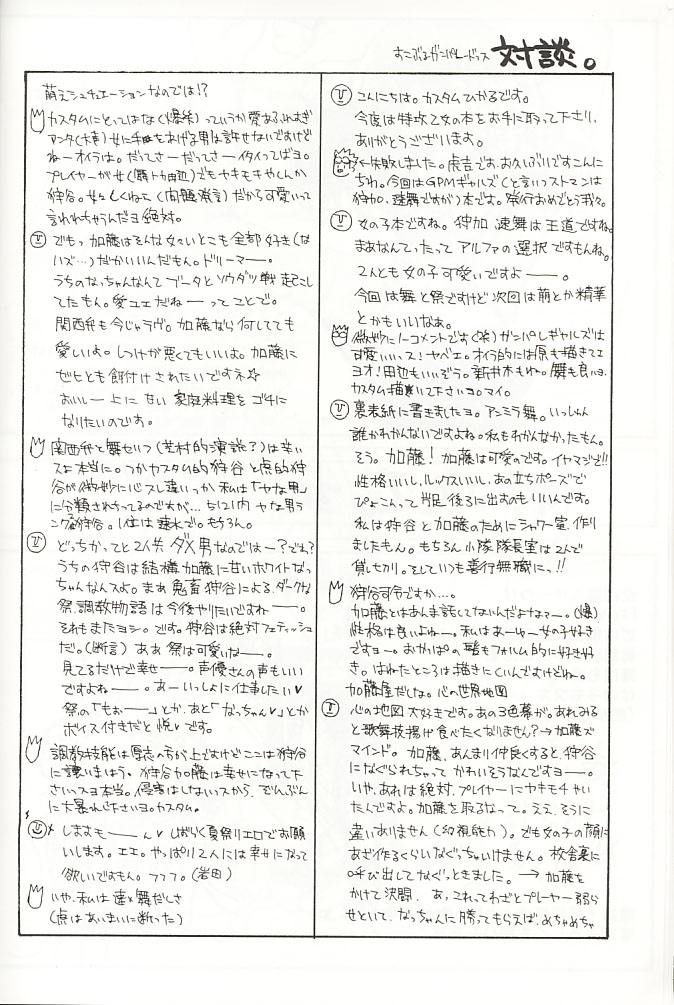 すこぶるガンパレードっス 対談。
こんにちは。カスタムひかるです。
今度は特攻乙女の本をお手に取って下さり、
ありがとうございます。
←失敗しました。虎吉です、お久しぶりですこんに
ちわ。今回はGPMギャルズ(と言いつつストマンは
狩加、速舞ですが)本です。発行おめでとう我々。
女の子本ですね。狩加 速舞は王道ですね。
まあなんてったって アルファの選択ですもんね。
2人とも女の子可愛いですよ――。
今回は舞と祭ですけど 次回は萌とか精華
とかもいいなぁ。
微妙にノーコメントです(笑)ガンパレギャルズは
可愛いいっス!ヤベエ。オイラ的には原も描きてエ
ヨオ!田辺もいいぞう。新井木もね。
カスタム描いて下さいヨ。マイ。
裏表紙に書きましたヨ。アンミラ舞。いっしゅん
誰かわかんないですよね。私もわかんなかったもん。
そう。加藤! 加藤は可愛のです。イヤマジで!!
性格いいし、ルックスいいし、あの立ちポーズで
ぴょこんって片足後ろに出すのもいいんです。
私は狩谷と加藤のためにシャワー室作り
ましたもん。もちろん小隊隊長室は2人で
貸し切り。そしていつも善行無職にっ!!
狩谷司令ですか…。
加藤とはあんま話してないんだよなァー。(爆)
性格は良いよねー。私はあーゆー女の子好き
ですヨー。おかっぱの髪もフォルム的に好き好
き。はねたところは描きにくいんですけどね。
加藤屋だしな。心の世界地図
心の地図大好きです。あの3色幕が。あれみる
と歌舞伎揚げ食べたくなりません?→加藤ズ
マインド。 加藤、あんまり仲良くすると、狩谷
になぐられちゃって かわいそうなんですヨ――。
いや、あれは絶対、プレイヤーにヤキモチやい
たんですよ。加藤を取るなって。ええ、そうに
違いありません(幻視能力)。でも女の子の顔に
あざ作るくらいなぐっちゃいけません。校舎裏に
呼び出してなぐっときました。→加藤を
かけて決闘。 あ、これってわざとプレーヤー弱ら
せといて、なっちゃんに勝ってもらえば、めちゃめちゃ
萌えシチュエーションなのでは!?
カスタムにとってはな(爆笑)っていうか愛あふれすぎ
アンタ(大事)女に手をあげる男は許せないですけど
ねーオイラは。だってさーだってさーイタイってばヨ。
プレイヤーが女(瀬戸口田辺)でもヤキモキやくんか
狩谷。女々しくねェ(問題発言)だから可愛いって
言われちゃうんだヨ絶対。
でもっ 加藤はそんな女々いとこも全部好き(な
ハズ…)だからいいんだもん。ドリーマー――。
うちのなっちゃんなんて ブータとソウダツ戦 起こし
てたもん。愛ユエだねーってことで。
関西弁も今じゃラヴ。加藤なら何してても
愛しいよ。しつけが悪くてもいいよ。加藤に
ゼヒとも餌付けされたいですネ☆
おいしー上に 安い 家庭料理をゴチに
なりたいのです。
関西弁と舞せいつ(芝村的演説?)は辛い
スよ本当に。つかカスタム的狩谷と虎的狩
谷が微妙に心スレ違いっつか 私は「ヤな男」
に分類されちってるのですが…。ちなみに内ヤな男ラ
ンク2位狩谷。1位は速水で。もちろん。
どっちかってと2人共 ダメ男なのではー?でね?
うちの狩谷は結構加藤に甘いホワイトなっ
ちゃんなんスよ。まぁ鬼畜狩谷による、ダークな
祭、調教物語は今後やりたいですねー――。
それもまたヨシ。です。狩谷は絶対フェティッシュ
だ。(断言) ああ 祭は可愛いねー。
見てるだけで幸せー。声優さんの声もいい
ですよねー。あーいっしょに仕事したい♥
祭の「もぉー――」とか、あと「なっちゃん♥」とか
ボイス付きだと悦♥です。
調教技能は厚志の方が上ですけどここは狩谷
に譲りましょう。狩谷加藤は幸せになって下
さいっスヨ本当。侵害はしないっスから、でんぶんに
に大暴れ下さいヨ。カスタム。
しますも――ん♥ しばらく夏祭りエロでお願
いします。エエ。やっぱり2人には幸せになって
欲しいですもん。フフフ。(岩田)
いや、私は速×舞だしさ
(虎はあいまいに断った)